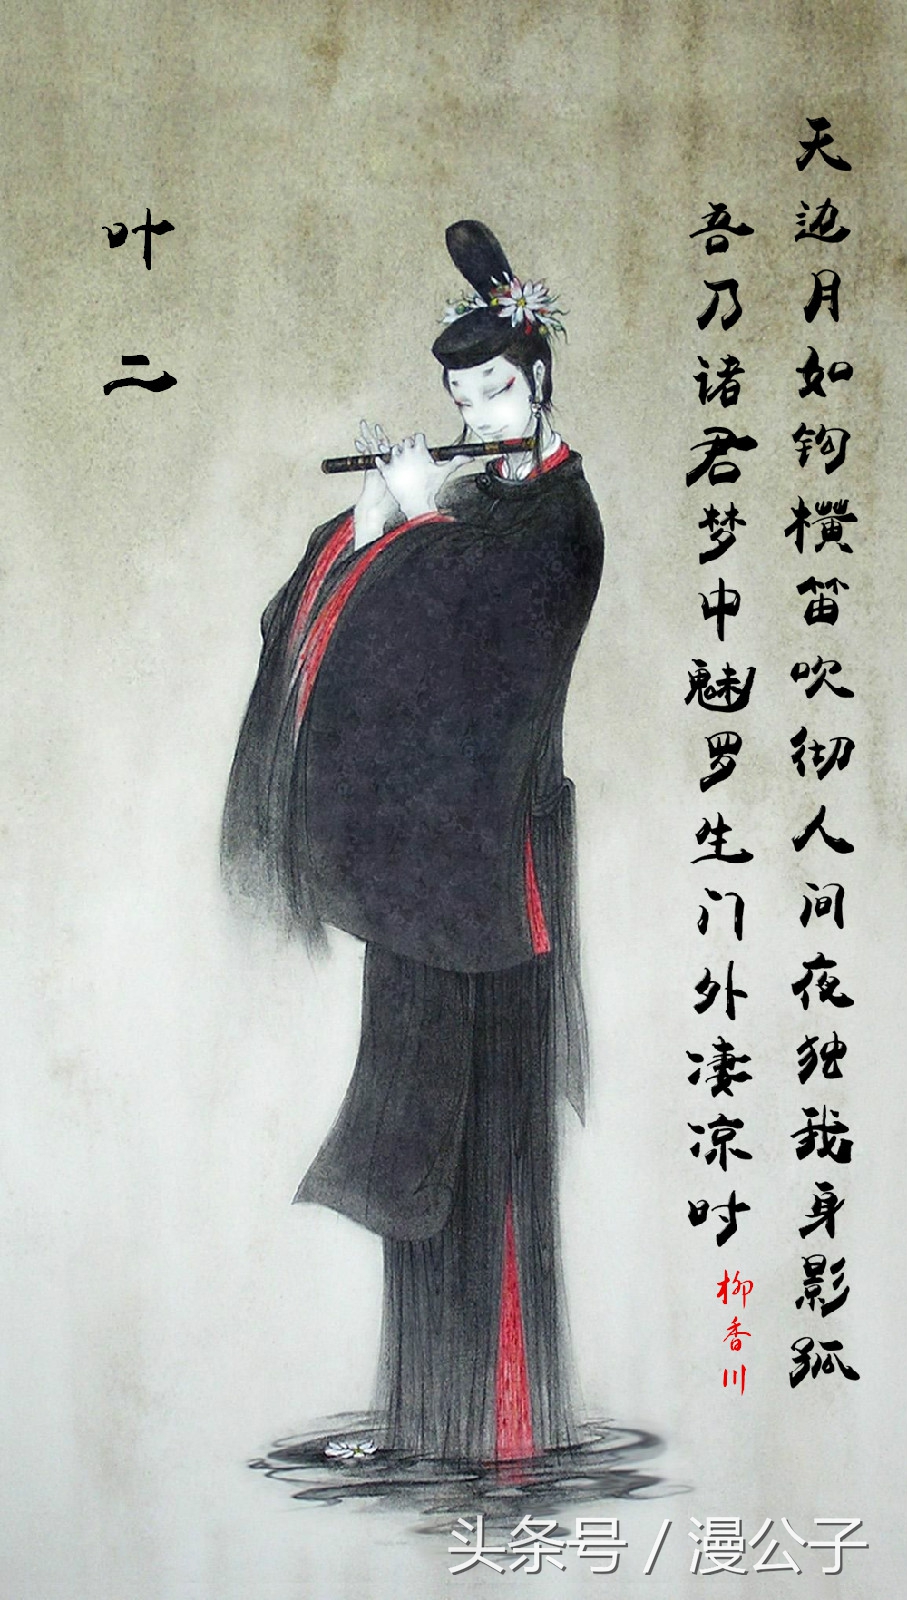 天边月如钩横笛吹彻人间夜独我身影孤
吾乃诸君梦中魅罗生门外凄凉时
柳香川
叶二
头条号 / 漫公子